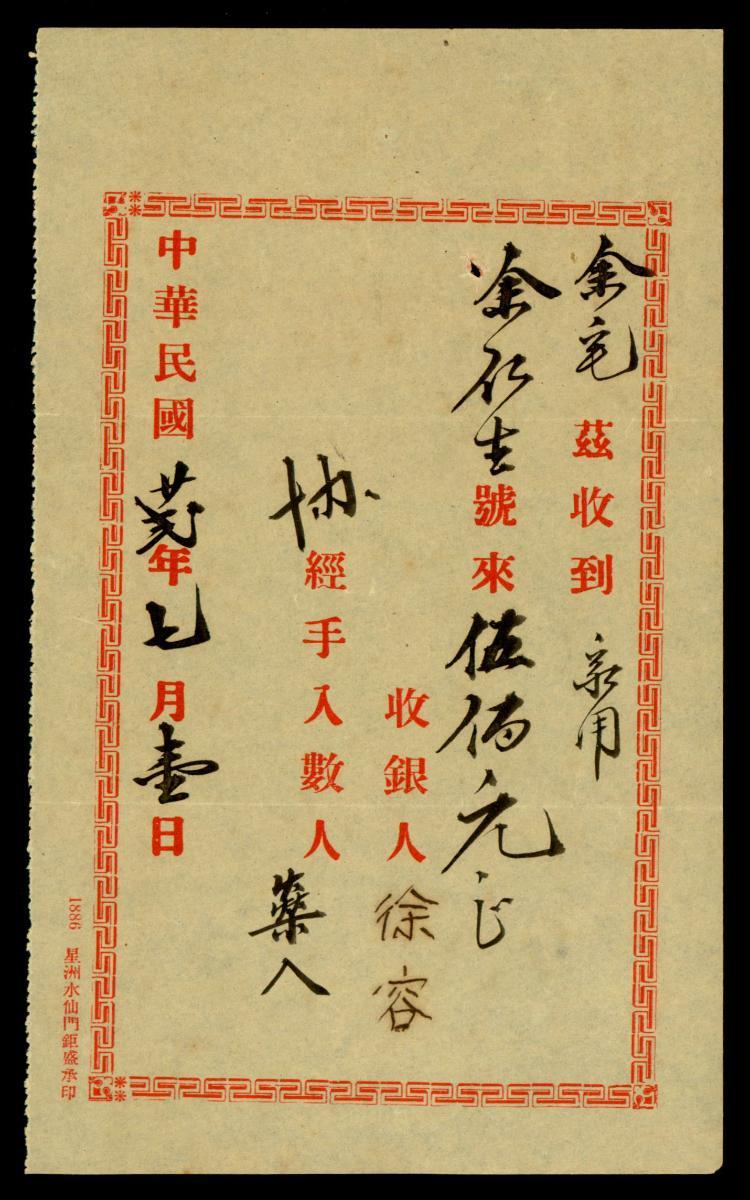 余宅茲收到家用
余仁生號來伍佰元正
收銀人徐容
協經手入數人藥入
中華民國廿九年七月壹日
1886 星洲水仙門鉅盛承印